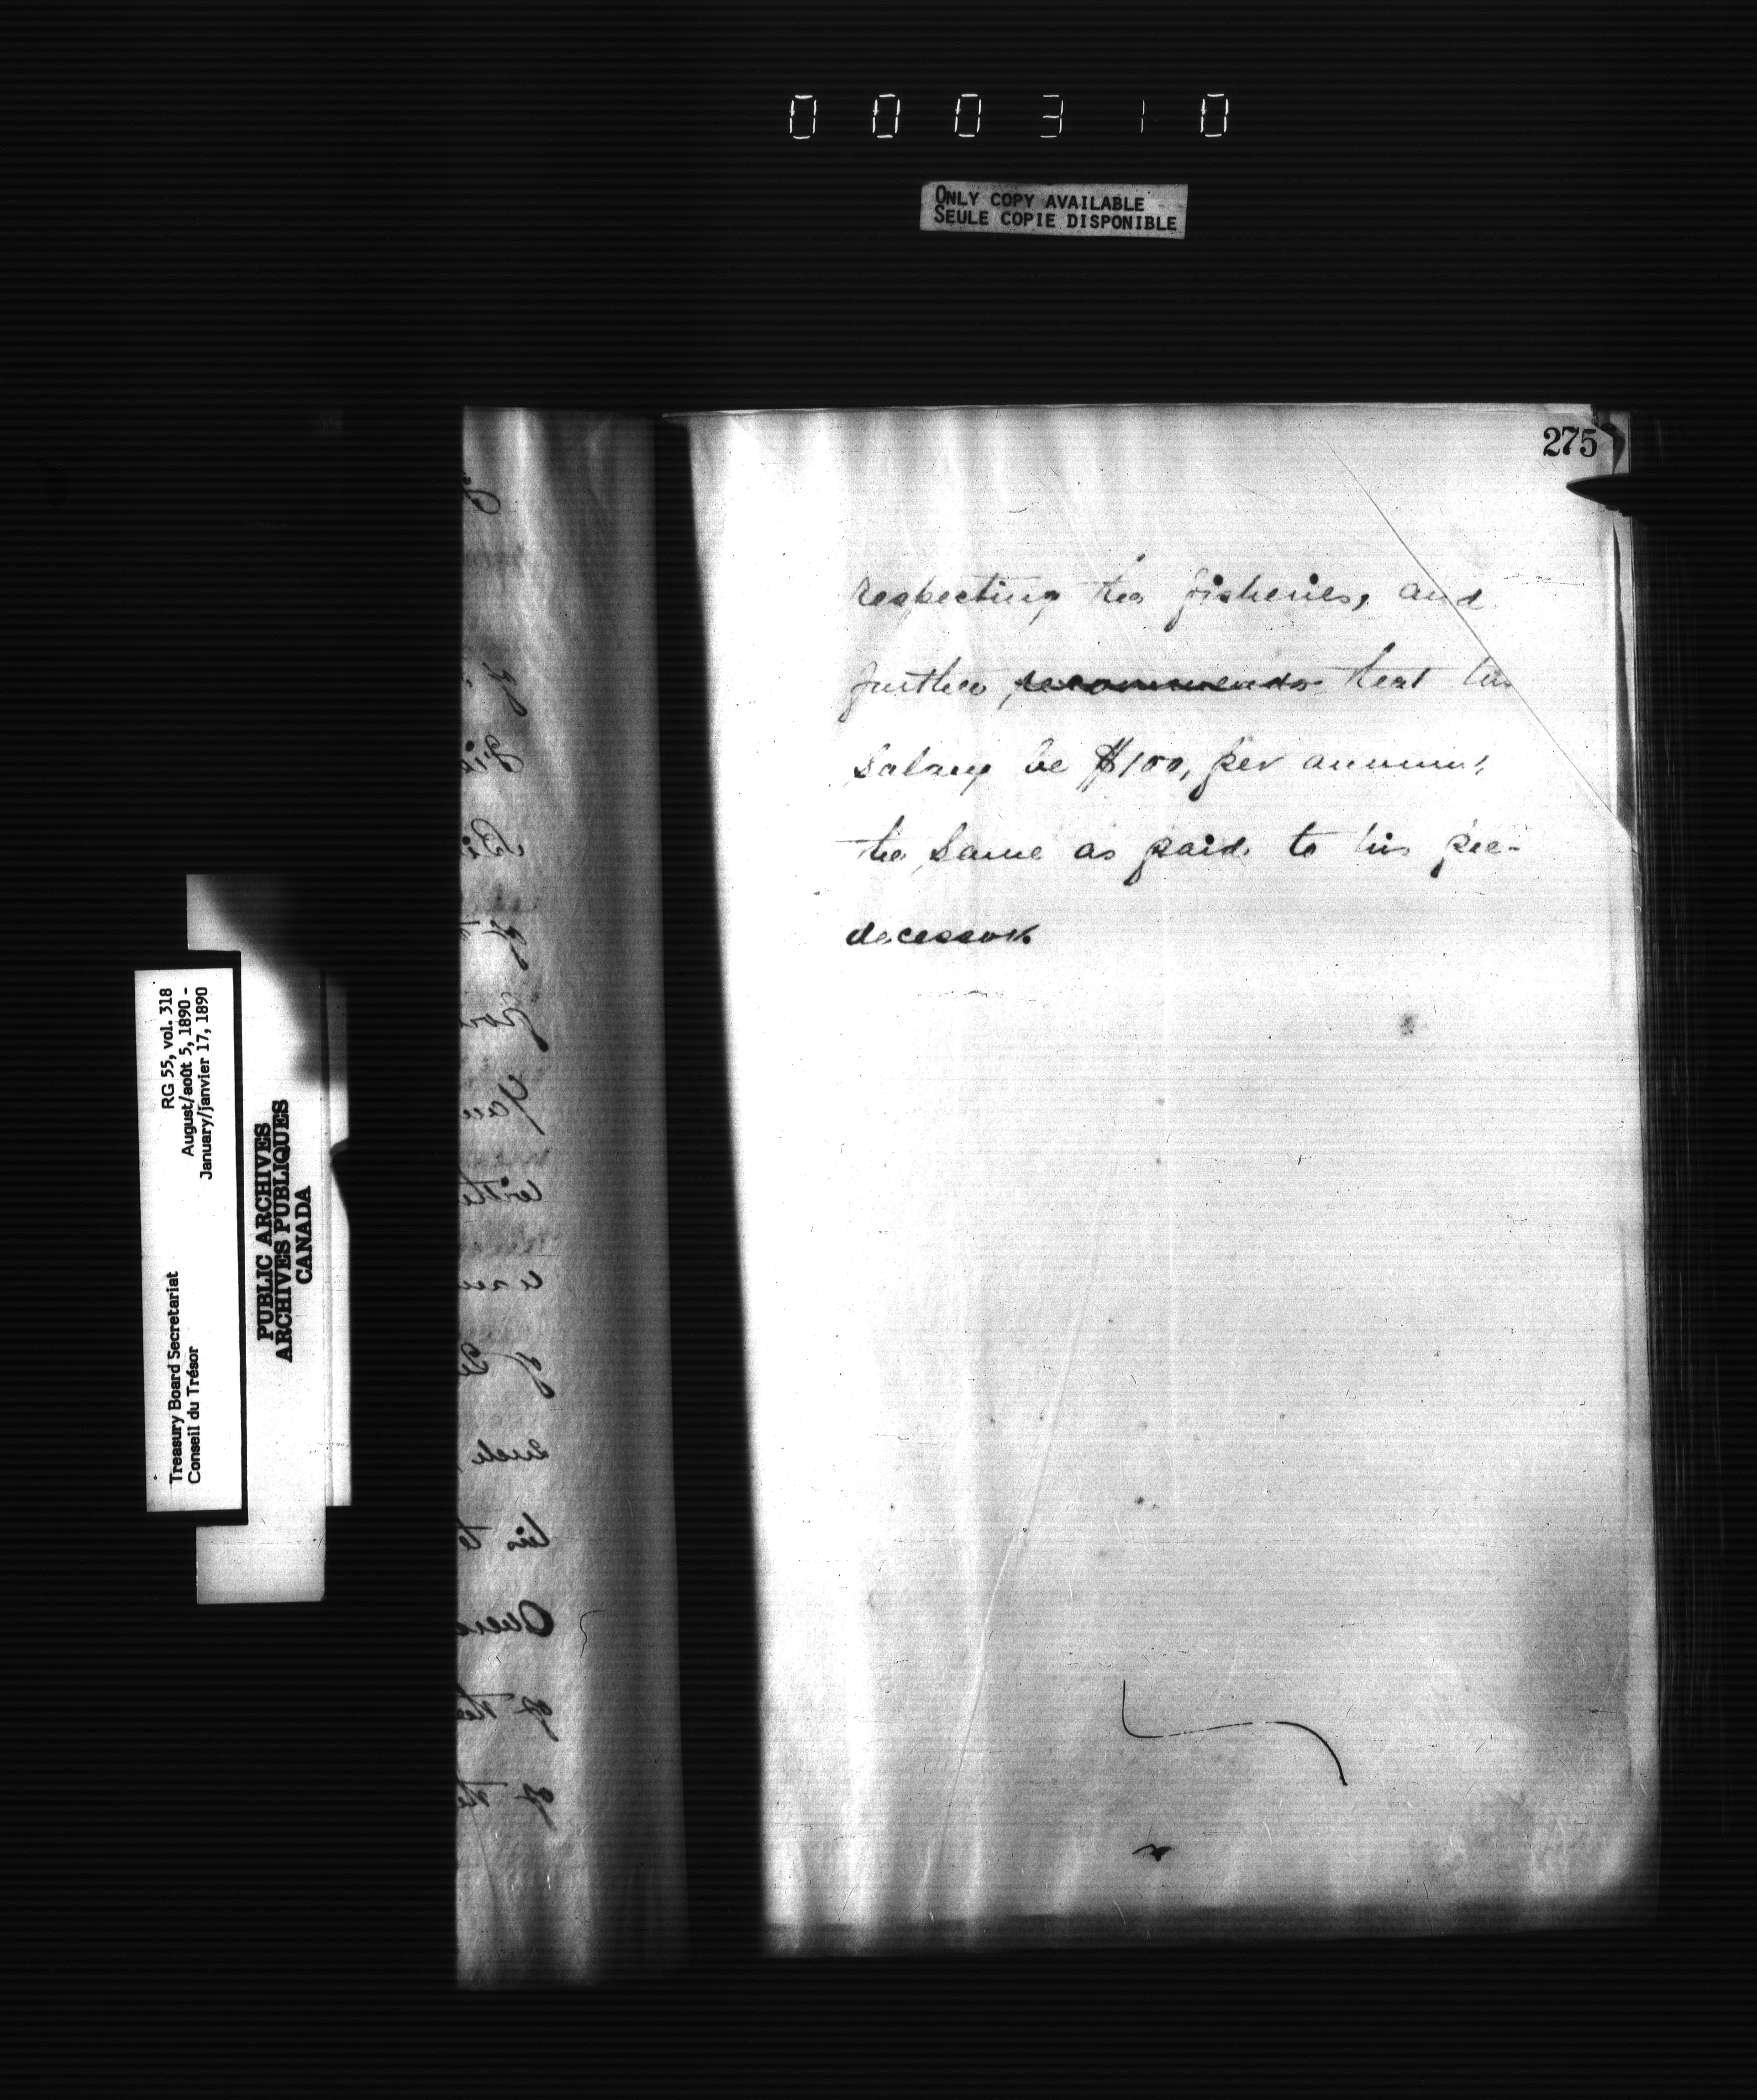 000310
ONLY COPY AVAILABLE
SEULE COPIE DISPONIBLE
275
respecting the fisheries, and
further recommends that his
salary be $100, per annum,
the same as paid to his pre-
decessor.
RG 55, vol. 318
August/août 5, 1890 -
January/janvier 17, 1890
Treasury Board Secretariat
Conseil du Trésor
PUBLIC ARCHIVES
ARCHIVES PUBLIQUES
CANADA